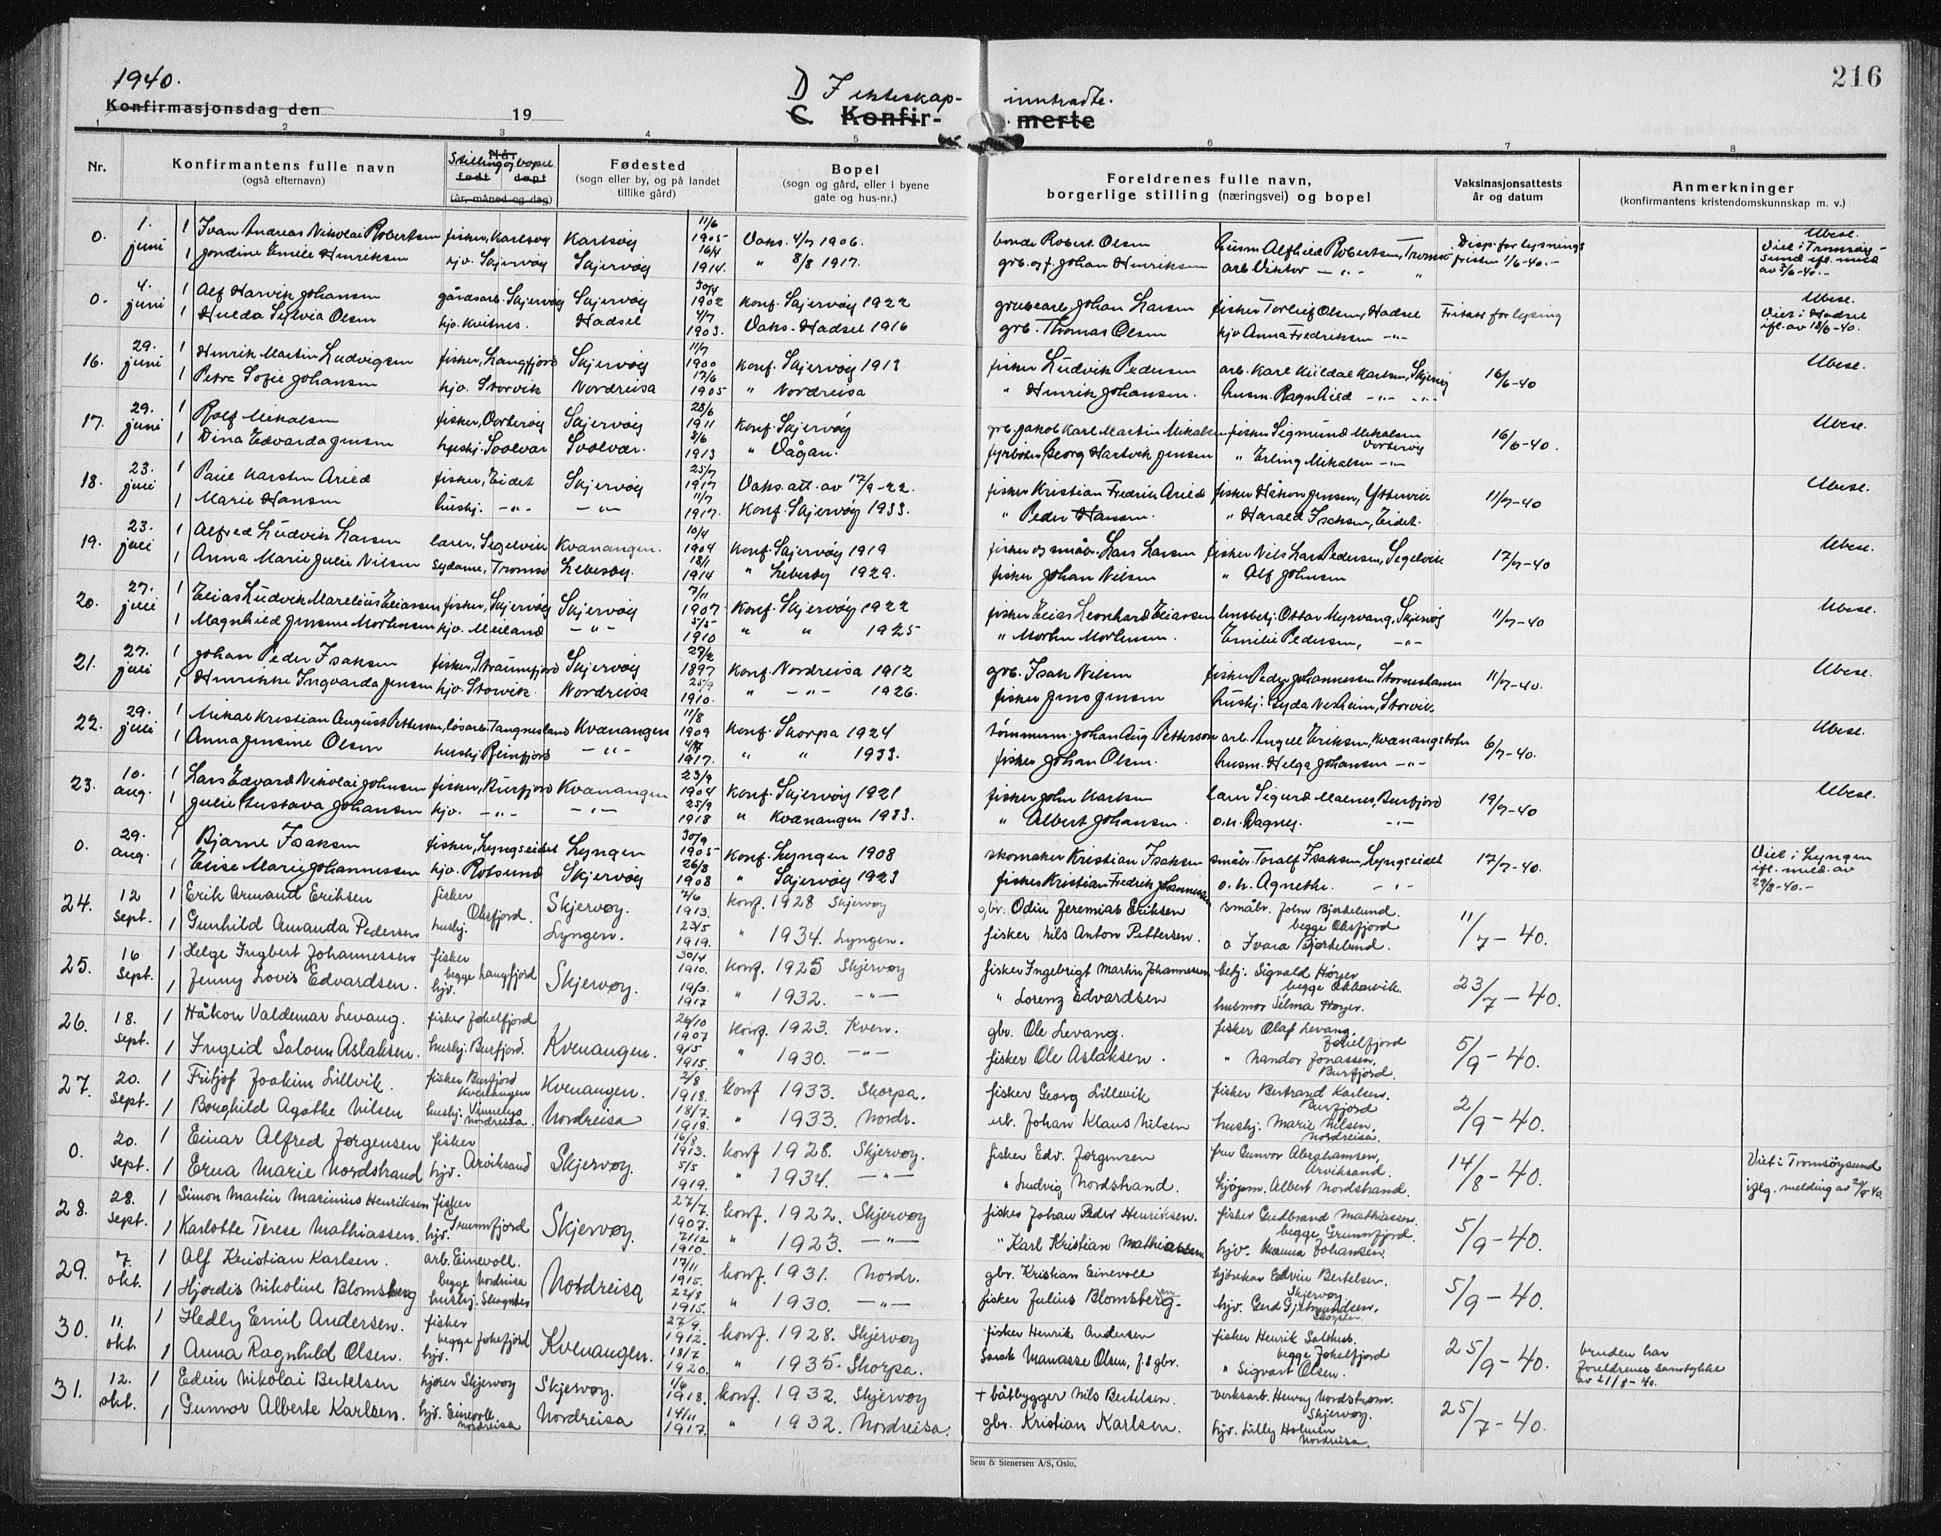 1940.
216
Konfirmasjonsdag den 19
D I ekteskap- inntrådte.
C. Konfir- merte
1 2 3 4 5 6 7 8
Nr.
Konfirmantens fulle navn
(også efternavn)
Når
Stilling og bopel
født døpt
(år, måned og dag)
Fødested
(sogn eller by, og på landet
tillike gård)
Bopel
(sogn og gård, eller i byene
gate og hus-nr.)
Foreldrenes fulle navn,
borgerlige stilling (næringsvei) og bopel
Vaksinasjonsattests
år og datum
Anmerkninger
(konfirmantens kristendomskunnskap m. v.)
0. 1. juni 1 Ivan Andreas Nikolai Robertsen fisker, Karlsøy Karlsøy 11/6 1905 Vaks. 4/7 1906. bonde Robert Olsen husm. Alfhild Robertsen, Tromsø Disp. for lysnings Ubesl.
1 Jordine Emilie Henriksen hjv. Skjervøy Skjervøy 16/4 1914. " 8/8 1917. grb. og f. Johan Henriksen arb. Viktor -"- " fristen 1/6-40.- Viet i Tromsøy-
sund ifl. meld
av 3/6-40.-
0. 4. juni 1 Alf Harvik Johansen gårdsarb. Skjervøy Skjervøy 30/4 1902 Konf. Skjervøy 1922 gruvearb. Johan Larsen fisker Torleif Olsen, Hadsel Fritatt for lysing Ubesl.
1 Hulda Sylvia Olsen hjv. Kvitnes. Hadsel 4/7 1903. Vaks. Hadsel 1916 grb. Thomas Olsen hjv Anna Fredriksen -"- Viet i Hadsel
ifl. av 18/6-40.
16. 29. juni 1 Henrik Martin Ludvigsen fisker, Langfjord Skjervøy 11/7 1900 Konf. Skjervøy 1913 fisker Ludvik Pedersen arb. Karl Kildal Karlsen, Skjervøy 16/6-40 Ubesl.
1 Petra Sofie Johansen hjv. Storvik Nordreisa 17/6 1905 " Nordreisa " Henrik Johansen. husm. Ragnhild -"- -"-
17. 29. juni 1 Rolf Mikalsen fisker, Vorterøy Skjervøy 28/6 1911 Konf. Skjervøy grb. Jakob Karl Martin Mikalsen fisker Sigmund Mikalsen Vorterøy 16/6-40. Ubesl.
1 Dina Edvarda Jensen hushj. Svolvær Svolvær. 2/6 1913 " Vågan. fyrbøter Georg Hartvik Jensen " Erling Mikalsen -"-
18. 23. juli 1 Paul Karsten Arild fisker, Eidet Skjervøy 25/7 1917 Vaks. att. av 17/9-22. fisker Kristian Fredrik Arild fisker Håkon Jensen, Yttervik 11/7-40 Ubesl.
1 Marie Hansen hushj. -"- -"- 11/7 1917. Konf. Skjervøy 1933. " Peder Hansen. " Harald Isaksen, Eidet.
19. 23. juli 1 Alfred Ludvik Larsen lærer, Segelvik Kvænangen. 10/4 1904 Konf. Skjervøy 1919 fisker og småbr. Lars Larsen fisker Nils Lars Pedersen, Segelvik 17/7-40 Ubesl.
1 Anna Marie Julie Nilsen sydame, Tromsø Lebesby. 18/1 1914 " Lebesby 1929. fisker Johan Nilsen " Alf Johnsen
20. 27. juli 1 Elias Ludvik Marelius Eliassen fisker, Skjervøy Skjervøy 7/11 1907 Konf. Skjervøy 1922 fisker Elias Leonhard Eliassen Ottar Myrvang, Skjervøy 11/7-40 Ubesl.
1 Magnhild Jensine Mortensen hjv. Meiland -"- 5/5 1910 " " 1925 " Morten Mortensen. Emilie Pedersen, -"-
21. 27. juli 1 Johan Peder Isaksen fisker, Straumfjord Skjervøy 29/2 1897 Konf. Nordreisa 1912 grb. Isak Nilsen fisker Peder Johannessen Storneshamn 11/7-40. Ubesl.
1 Henrikke Ingvarda Jensen hjv. Storvik. Nordreisa 25/9 1910. " -"- 1926. fisker Jens Jensen hushj. Lyda Nerheim, Storvik.
22. 29. juli 1 Mikal Kristian August Pettersen, løsarb. Tangnesland Kvænangen 11/8 1909 Konf. Skorpa 1924 tømmerm. Johan Aug. Petterson arb. Angell Eriksen, Kvænangsbotn 6/7-40. Ubesl.
1 Anna Jensine Olsen hushj. Reinfjord -"- 4/7 1917. " " 1933. fisker Johan Olsen. husm. Helga Johansen -"-
23. 10. aug. 1 Lars Edvard Nikolai Johnsen fisker, Burfjord Kvænangen 23/9 1904 Konf. Skjervøy 1921 fisker John Karlsen lærer Sigurd Malnes, Burfjord 19/7-40 Ubesl.
1 Julie Gustava Johansen hjv. -"- -"- 25/9 1918 " Kvænangen 1933. " Albert Johansen. o.h. Dagny. -"-
0. 29. aug. 1 Bjarne Isaksen fisker, Lyngseidet Lyngen 30/9 1905 Konf. Lyngen 1908 skomaker Kristian Isaksen småbr. Toralf Isaksen, Lyngseidet 17/7-40. Viet i Lyngen
1 Elise Marie Johannessen hjv. Rotsund Skjervøy 26/8 1908 " Skjervøy 1923 fisker Kristian Fredrik Johannessen o.h. Agnethe. -"- ifl. meld. av
29/8-40.-
24. 12 sept. 1 Erik Armand Eriksen fisker Oksfjord. Skjervøy. 7/6 1913. konf. 1928 Skjervøy gbr. Odin Jeremias Eriksen småbr. John Bjørkelund. begge Oksfjord 11/7-40.
1 Gunhild Amanda Pedersen hushj. Lyngen. 23/5 1919. " 1934. Lyngen. fisker Nils Anton Pettersen. o Ivara Bjørkelund.
25. 16 sept. 1 Helge Ingbert Johannessen fisker begge Langfjord Skjervøy. 30/4 1910. konf. 1925 Skjervøy fisker Ingebrigt Martin Johannessen betj. Sigvald Høyer begge Akkarvik. 23/7-40.
1 Jenny Lovis Edvardsen. hjv. 19/3. 1917 " 1932. -"- " Lorenz Edvardsen husmor Selma Høyer.
26. 18. sept. 1 Håkon Valdemar Levang. fisker Jøkelfjord Kvenangen. 26/10 1907 konf. 1923. Kven. gbr. Ole Levang. fisker Olaf Levang. Jøkelfjord 5/9-40.
1 Ingeid Salom Aslaksen. hushj. Burfjord. 9/5 1915. " 1930. -"- fisker Ole Aslaksen. " Nandor Jonassen, Burfjord.
27. 20. sept. 1 Fritjof Joakim Lillevik. fisker Burfjord Kvenangen Kvenangen. 2/8 1918. konf 1933. Skorpa. fisker Georg Lillevik fisker Bertrand Karlsen. Burfjord 2/9-40.
1 Borghild Agathe Nilsen hushj. Vinnelys Nordreisa. Nordreisa 18/7. 1918. " 1933. Nordr. erb. Johan Klaus Nilsen hushj. Marie Nilsen, Nordreisa.
0. 20. sept. 1 Einar Alfred Jørgensen fisker Arviksand Skjervøy. 16/8 1913. konf 1928. Skjervøy. fisker Edv. Jørgensen fru Gunvor Abrahamsen, Arviksand. 14/8-40. Viet i Tromsøysund
1 Erna Marie Nordstrand hjv. 5/5 1919. " 1934. -"- " Ludvig Nordstrand. kjøpm. Albert Nordstrand. iflg. melding av 24/9 40.
28. 28. sept. 1 Simon Martin Marinius Henriksen fisker Grunnfjord Skjervøy. 27/7. 1907. konf. 1922. Skjervøy fisker Johan Peder Henriksen. fisker Gudbrand Mathiassen. begge Grunnfjord. 5/9-40.
1 Karlotte Terese Mathiassen. hjv. 2/12 1910. " 1923. -"- " Karl Kristian Mathiassen hjv. Manna Johansen.
29. 7. okt. 1 Alf Kristian Karlsen. arb. Einevoll. begge Nordreisa Nordreisa 17/11 1915. konf. 1931. Nordr. gbr. Kristian Einevoll Edvin Bertelsen. Skjervøy 5/9-40.
1 Hjørdis Nikoline Blomsberg hushj. 22/8 1915. " 1930. -"- fisker Julius Blomsberg hjv. Gerd Gjetmundsen,
30. 11. okt. 1 Hedly Emil Andersen. fisker begge Jøkelfjord Kvenangen. 27/9. 1912. konf. 1928. Skjervøy fisker Henrik Andersen fisker Henrik begge Jøkelfjord 25/9-40. bruden har
1 Anna Ragnhild Olsen. hjv. 18/7 1920. " 1935. Skorpa. Sarak Manasse Olsen, f.s gbr. " Sigvart Olsen. foreldrenes samtykke
av 21/8-40.
31. 12. okt. 1 Edvin Nikolai Bertelsen kjører Skjervøy Skjervøy. 1/6 1918. konf. 1932. Skjervøy + båtbygger Nils Bertelsen. verksarb. Henry Nordstrøm. Skjervøy. 25/7-40.
1 Gunvor Alberte Karlsen. hjv. Einevoll Nordreisa Nordreisa 14/11 1917. " 1932. Nordreisa. gbr. Kristian Karlsen. hjv. Lilly Holmen Nordreisa.
Sem & Stenersen A/S, Oslo.